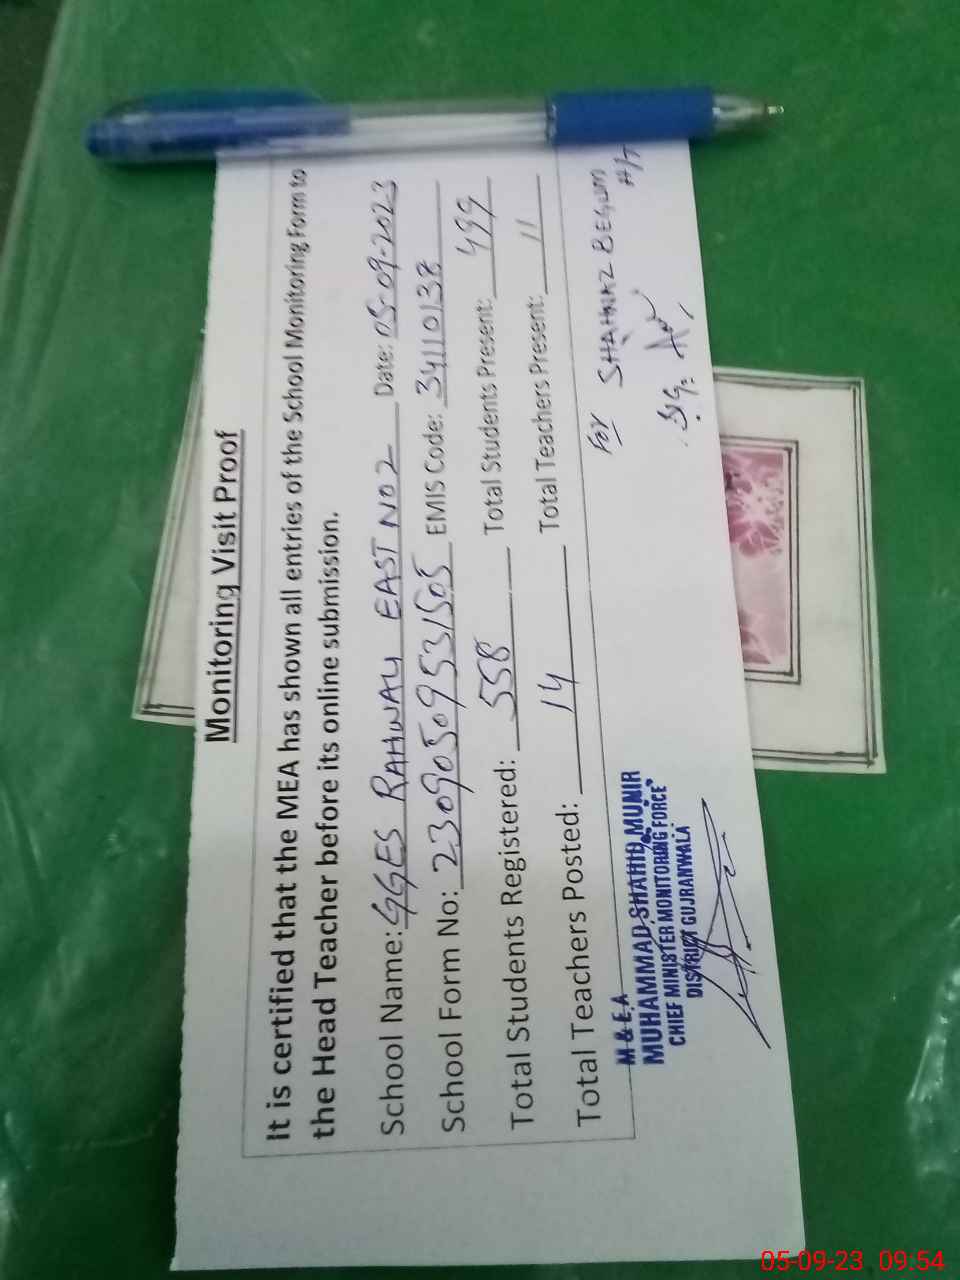 Monitoring Visit Proof
It is certified that the MEA has shown all entries of the School Monitoring Form to
the Head Teacher before its online submission.
School Name: GGES RAHWALI EAST NO2 Date: 05-09-2023
School Form No: 23090509531505 EMIS Code: 34110138
Total Students Registered: 558 Total Students Present: 499
Total Teachers Posted: 14 Total Teachers Present: 11
M & E.A
MUHAMMAD SHAHID MUNIR
CHIEF MINISTER MONITORING FORCE
DISTRICT GUJRANWALA
For SHAHNAZ BEGUM
H/T
Sig:
05-09-23 09:54